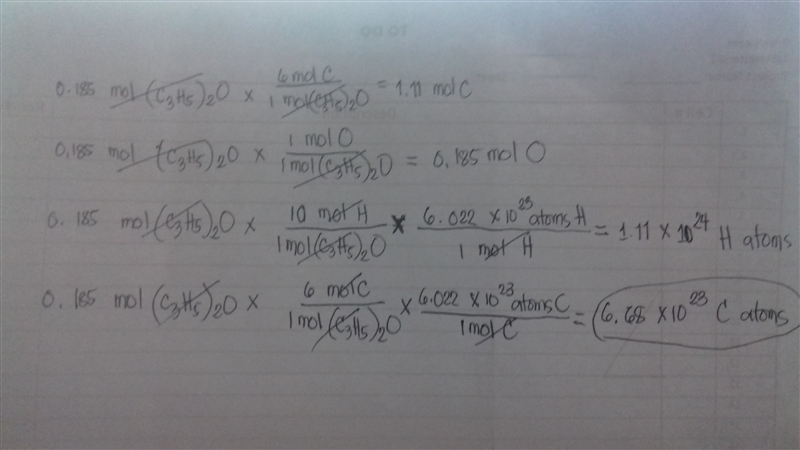 TO DO
0.185 mol (C3H5)2O × 6 mol C / 1 mol (C3H5)2O = 1.11 mol C
0.185 mol (C3H5)2O × 1 mol O / 1 mol (C3H5)2O = 0.185 mol O
0.185 mol (C3H5)2O × 10 mol H / 1 mol (C3H5)2O × 6.022 × 10^23 atoms H / 1 mol H = 1.11 × 10^24 H atoms
0.185 mol (C3H5)2O × 6 mol C / 1 mol (C3H5)2O × 6.022 × 10^23 atoms C / 1 mol C = 6.68 × 10^23 C atoms